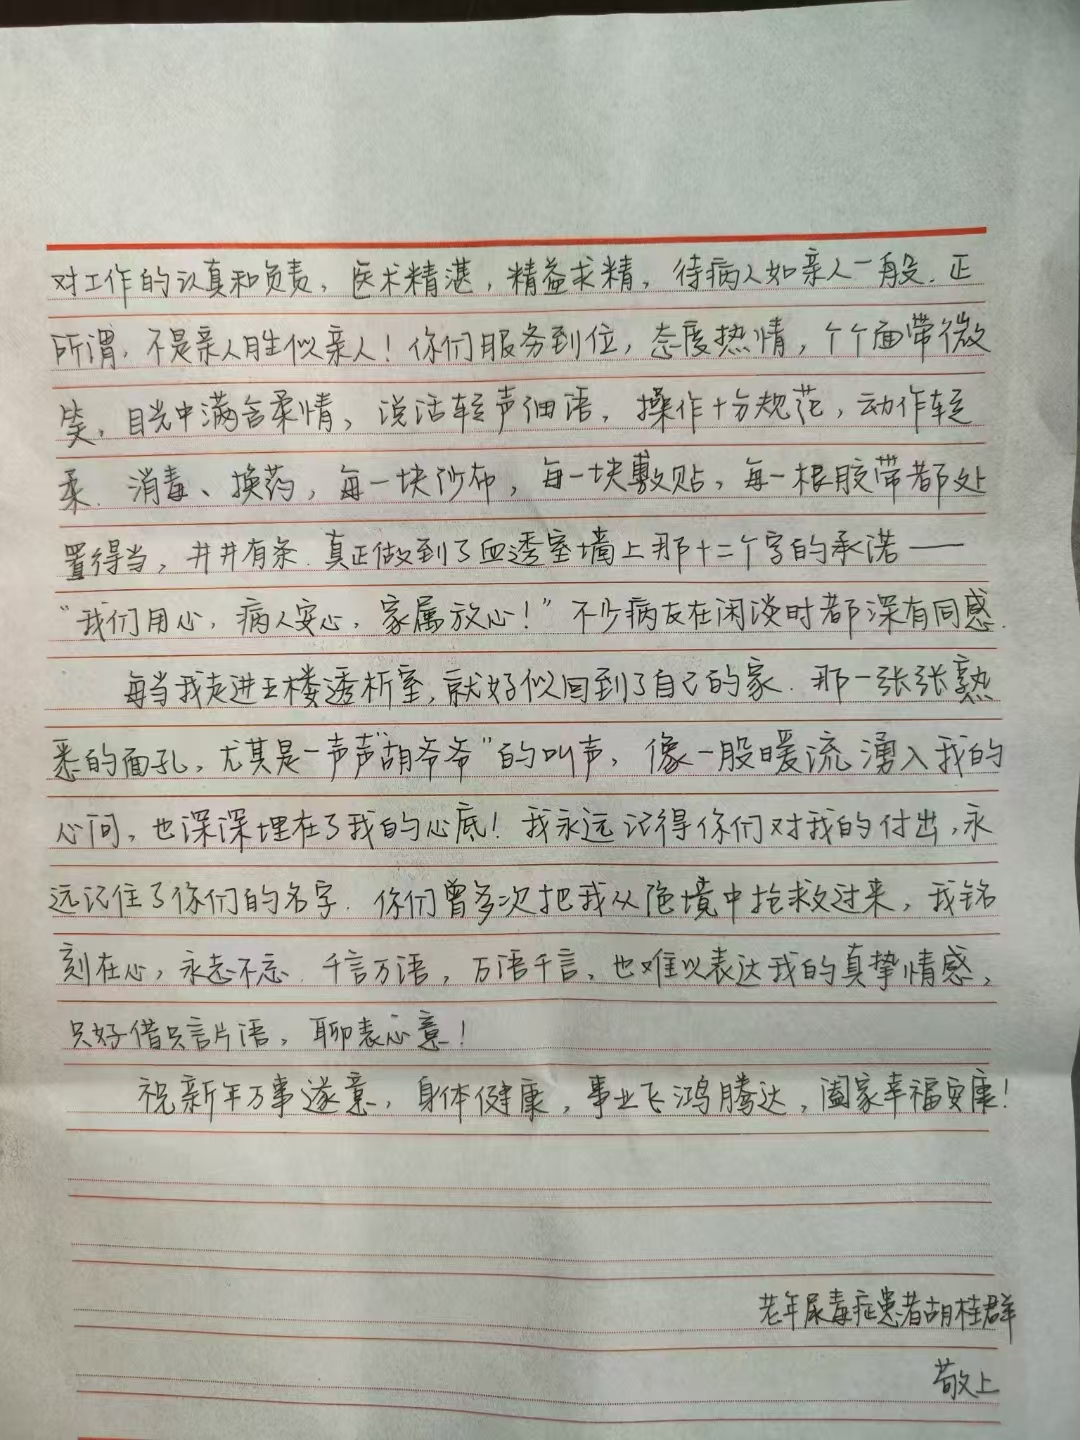 对工作的认真和负责，医术精湛，精益求精，待病人如亲人一般.正
所谓，不是亲人胜似亲人！你们服务到位，态度热情，个个面带微
笑，目光中满含柔情，说话轻声细语，操作十分规范，动作轻
柔.消毒、换药，每一块纱布，每一块敷贴，每一根胶带都处
置得当，井井有条.真正做到了血透室墙上那十二个字的承诺——
“我们用心，病人安心，家属放心！”不少病友在闲谈时都深有同感.
每当我走进五楼透析室，就好似回到了自己的家.那一张张熟
悉的面孔，尤其是一声声“胡爷爷”的叫声，像一股暖流湧入我的
心间，也深深埋在了我的心底！我永远记得你们对我的付出，永
远记住了你们的名字.你们曾多次把我从险境中抢救过来，我铭
刻在心，永志不忘.千言万语，万语千言，也难以表达我的真挚情感，
只好借只言片语，聊表心意！
祝新年万事遂意，身体健康，事业飞鸿腾达，阖家幸福安康！
老年尿毒症患者胡桂群
敬上